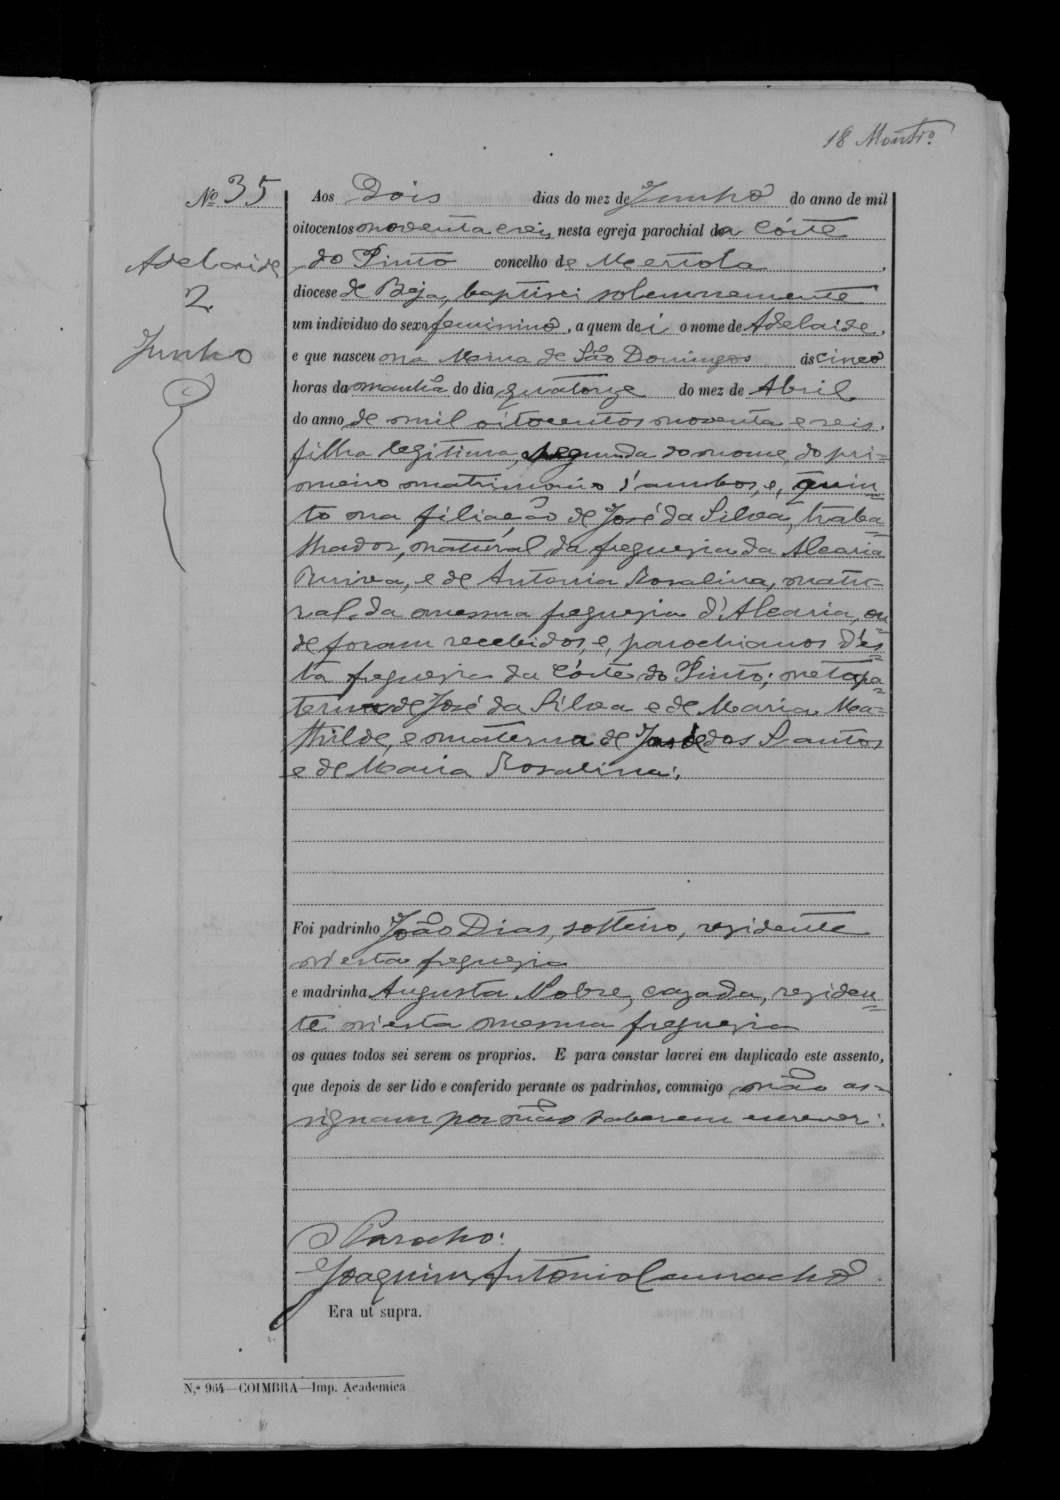 18 Montrº
Nº 35
Adelaide
2
Junho
Aos Dois dias do mez de Junho do anno de mil
oitocentos noventa e seis, nesta egreja parochial da Córte
do Pinto concelho de Mertola,
diocese de Beja, baptisei solemnemente
um individuo do sexo feminino, a quem dei o nome de Adelaide,
e que nasceu na Mina de São Domingos ás cinco
horas da manhã do dia quatorze do mez de Abril
do anno de mil oitocentos noventa e seis,
filha legitima, segunda do nome, do pri=
meiro matrimonio d'ambos, e, quin=
to na filiação de José da Silva, traba=
lhador, natural da freguezia da Alcaria
Ruiva, e de Antonia Rosalina, natu=
ral da mesma freguezia d'Alcaria, on=
de foram recebidos, e, parochianos d'es=
ta freguezia da Córte do Pinto; neta pa=
terna de José da Silva e de Maria Ma=
thilde, e materna de José dos Santos
e de Maria Rosalina;
Foi padrinho João Dias, solteiro, rezidente
n'esta freguezia
e madrinha Augusta Nobre, cazada, reziden=
te n'esta mesma freguezia
os quaes todos sei serem os proprios. E para constar lavrei em duplicado este assento,
que depois de ser lido e conferido perante os padrinhos, commigo não as=
signam por não saberem escrever:
O Parocho:
Joaquim Antonio Camacho
Era ut supra.
N.º 954—COIMBRA—Imp. Academica